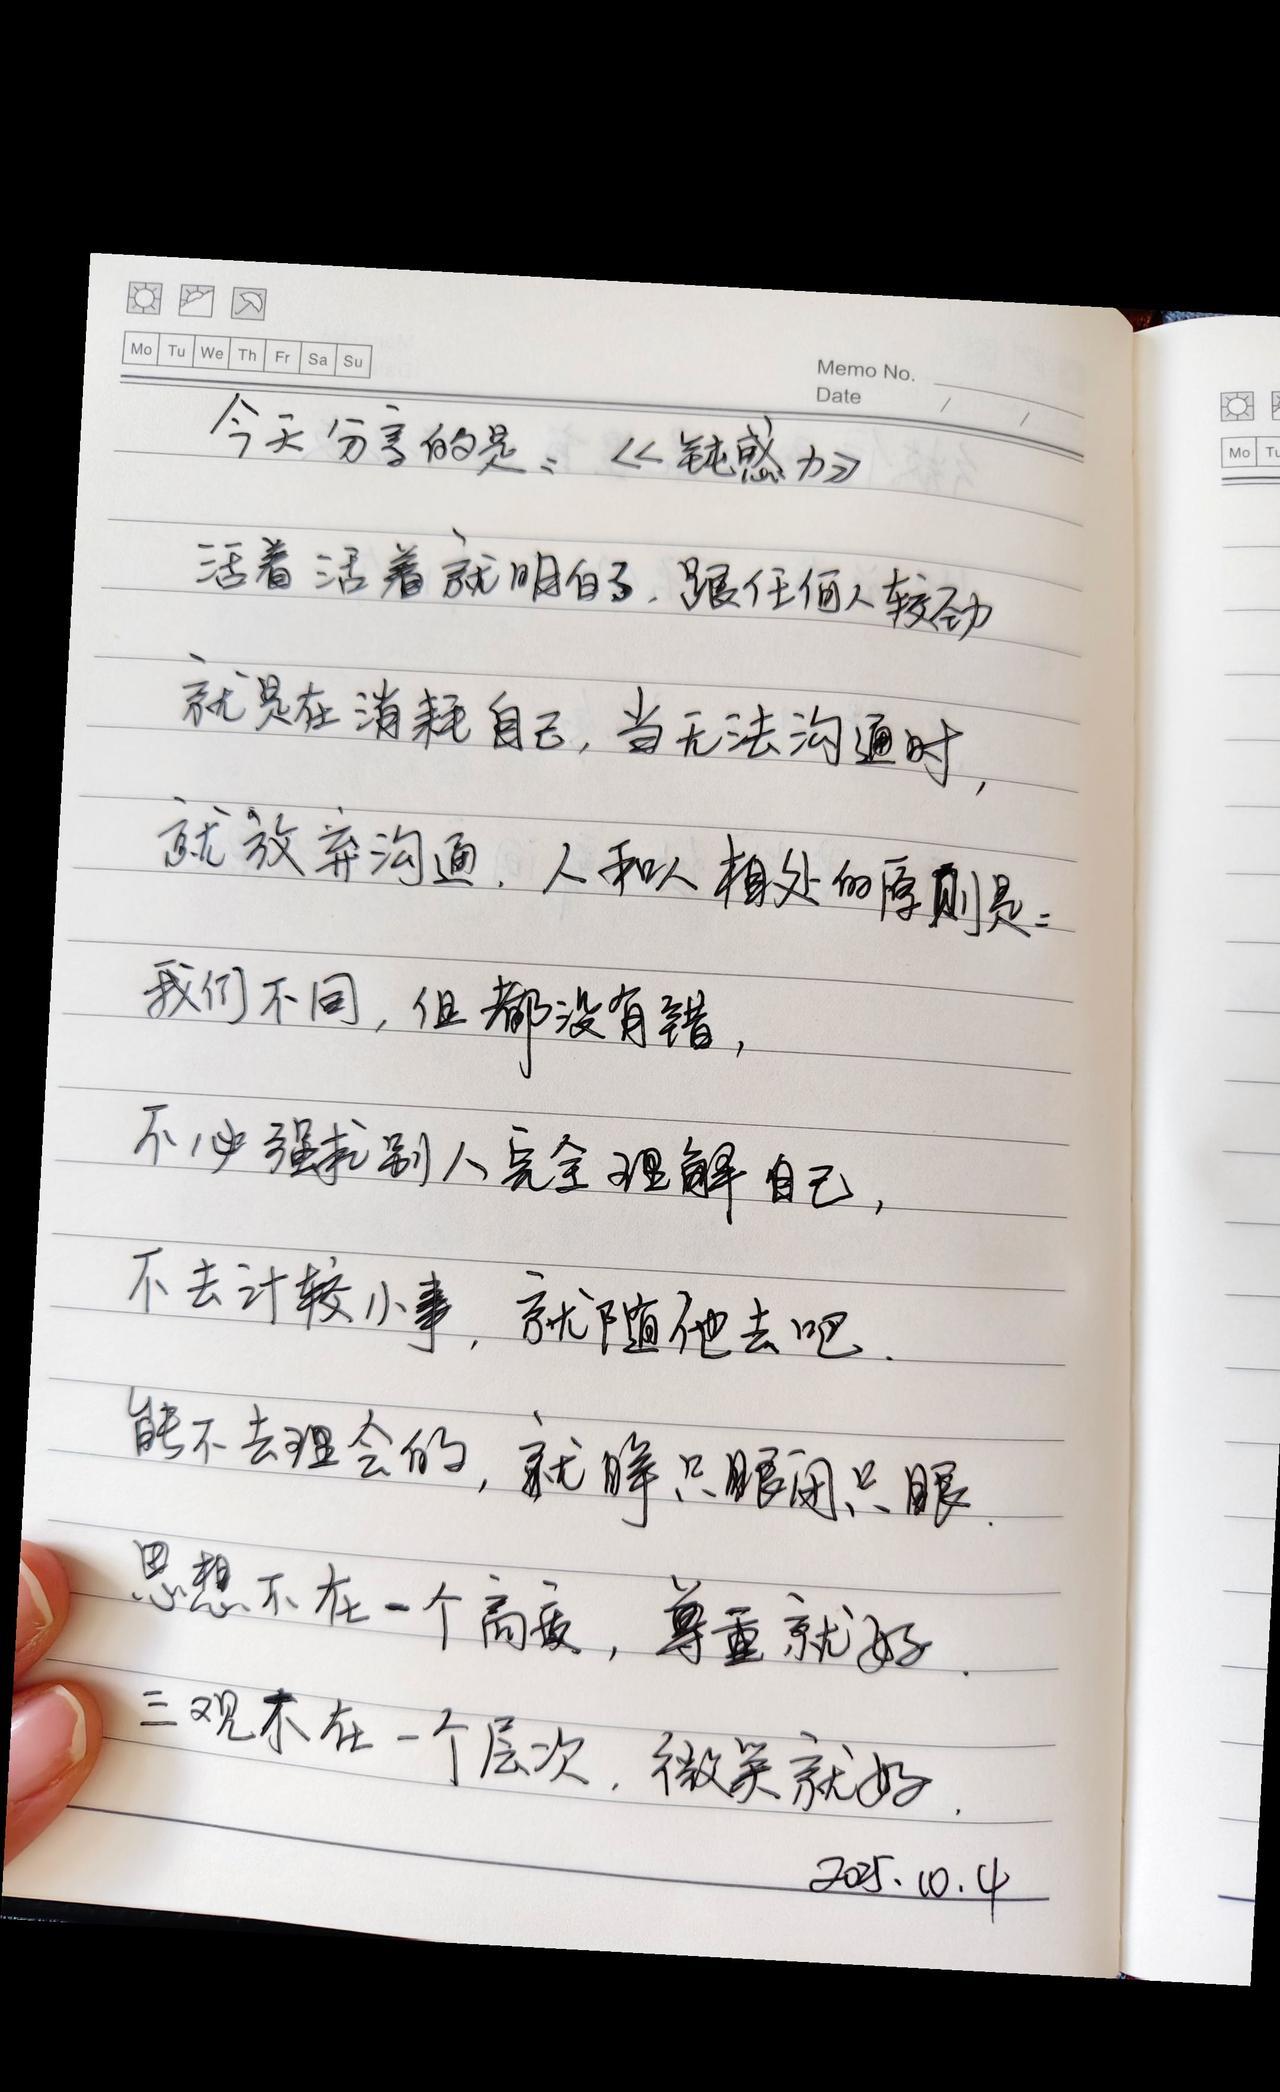 Mo Tu We Th Fr Sa Su
Memo No.
Date / /
今天分享的是：《钝感力》
活着活着就明白了.跟任何人较劲
就是在消耗自己,当无法沟通时,
就放弃沟通.人和人相处的原则是：
我们不同,但都没有错,
不必强求别人完全理解自己,
不去计较小事,就随他去吧.
能不去理会的,就睁只眼闭只眼.
思想不在一个高度,尊重就好.
三观不在一个层次.微笑就好.
2025.10.4
Mo Tu